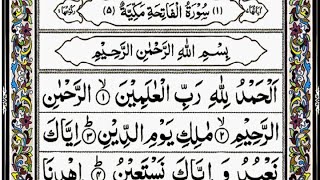 (١) سُوْرَةُ الْفَاتِحَةِ مَكِّيَّةٌ (٥)
بِسْمِ اللّٰهِ الرَّحْمٰنِ الرَّحِيْمِ
اَلْحَمْدُ لِلّٰهِ رَبِّ الْعٰلَمِيْنَ ۙ﴿١﴾ الرَّحْمٰنِ
الرَّحِيْمِ ۙ﴿٢﴾ مٰلِكِ يَوْمِ الدِّيْنِ ؕ﴿٣﴾ اِيَّاكَ
نَعْبُدُ وَ اِيَّاكَ نَسْتَعِيْنُ ؕ﴿٤﴾ اِهْدِنَا